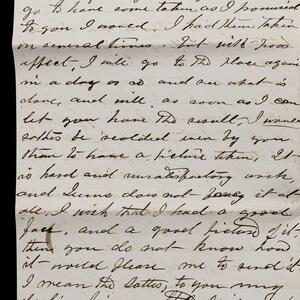 go to have some taken as I promised
to you I would, I had them taken
on several times but with poor
affect, I will go to the place again
in a day or so and see what is
done, and will, as soon as I can
let you have the result, I would
rather be scolded even by you
than to have a picture taken, It
is hard and work
and does not it at
all, I wish that I had a good
face, and a good picture of it
then you do not know how
it would please me to send it
I mean the latter, to you my